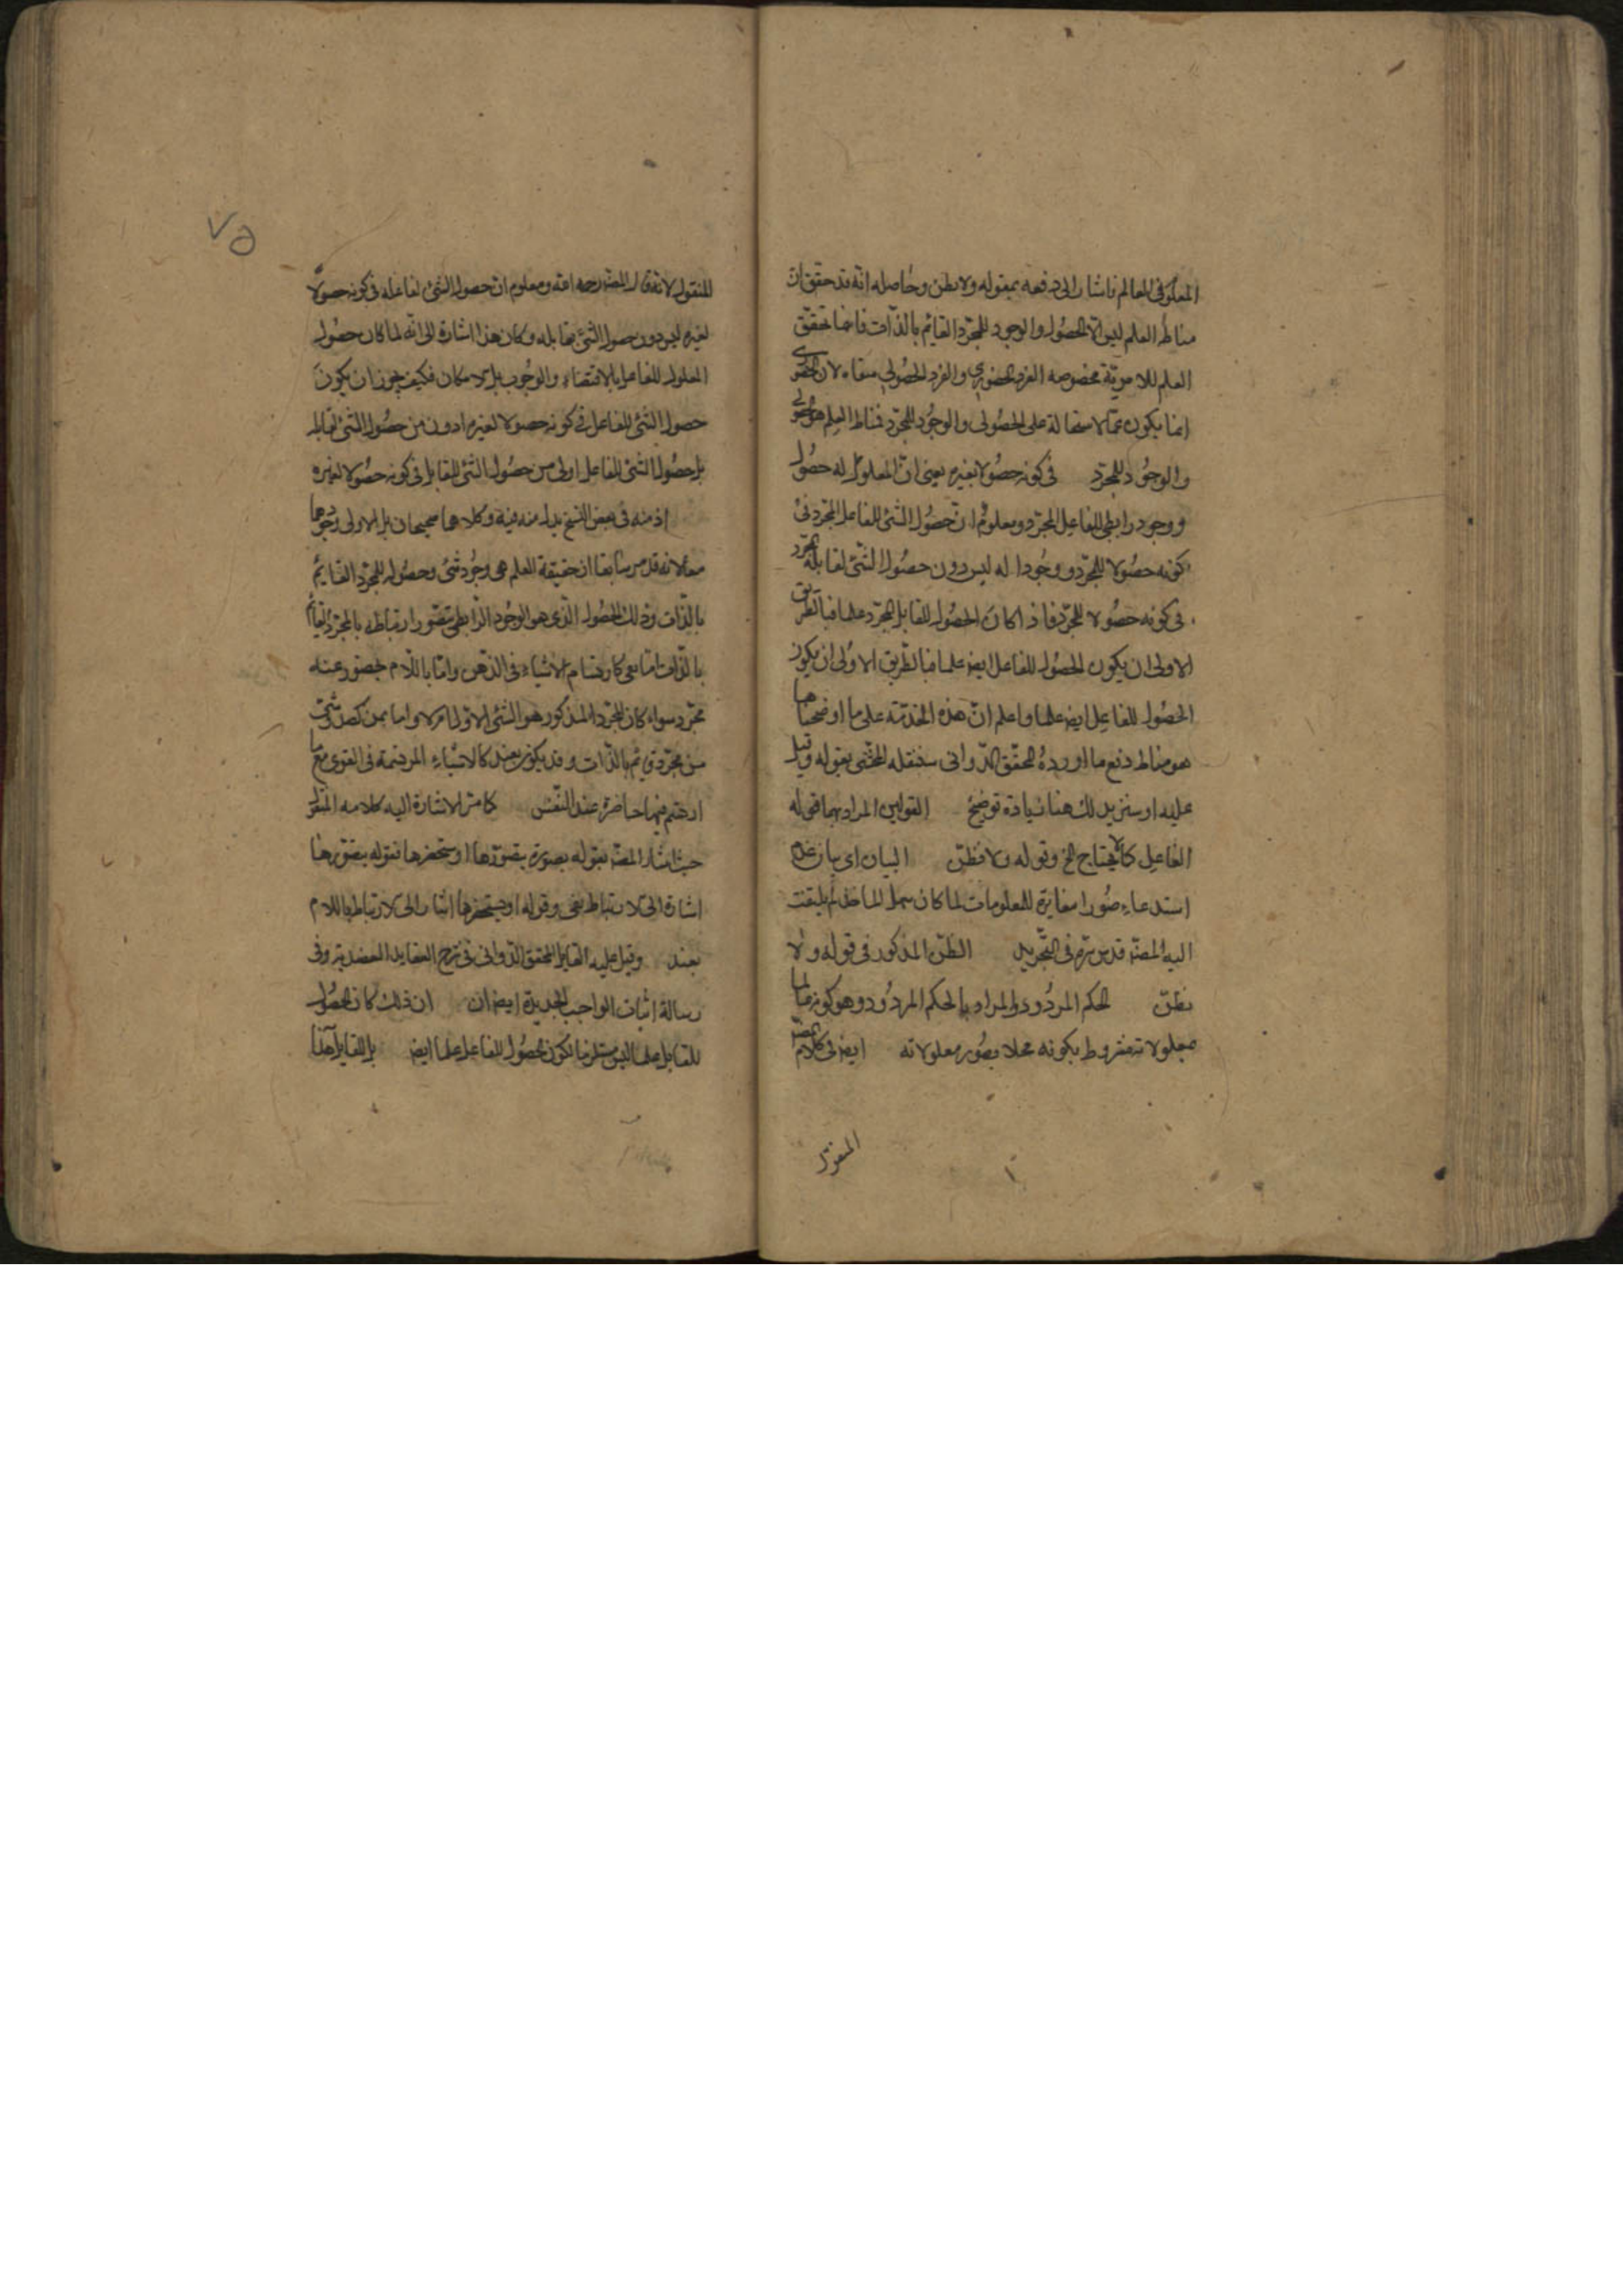 المعلول في العالم فاشار الى دفعه بقوله ولا يظن وحاصله انه قد حقق ان
مناط العلم ليس الا الحصول والوجود للمجرد القايم بالذات فاينما تحقق
العلم للا مزية مخصوصه الفرد الحضوري والفرد الحصولي
انما يكون على الحصولى والوجود للمجرد فمناط العلم هو
والوجود للمجرد في كونه حصولا لغيره يعنى ان المعلول له حصول
ووجود رابطي للفاعل المجرد ومعلوم ان حصول الشئ للفاعل المجرد في
كونه حصولا للمجرد ووجودا له ليس دون حصول الشئ لقابله المجرد
في كونه حصولا للمجرد فاذا كان الحصول للقابل المجرد علما فبالطريق
الاولى ان يكون الحصول للفاعل ايض علما فبالطريق الاولى ان يكون
الحصول للفاعل ايض علما واعلم ان هذه المقدمة على ما اوضحناها
هو مناط دفع ما اورده المحقق الدوانى سينقله المحشى بقوله وقيل
عليه او سنزيد لك هنا زيادة توضيح القولين المراد بهما قوله
الفاعل كما لا يحتاج الخ وقوله ولا تظنن البيان اى بيان عدم
استدعاء صور مغايرة للمعلومات لما كان سهل الماخذ لم يلتفت
اليه المصنف قدس سره في التجريد الظن المذكور فى قوله ولا
تظنن الحكم المردود والمراد بالحكم المردود هو كونه عالما
بمعلولاته مشروط بكونه محلا بصور معلولاته ايض فى كلام المصنف
المنقول
٧٥
المنقول لانه قال المصنف رحمه الله ومعلوم ان حصول الشئ لفاعله في كونه حصولا
لغيره ليس دون حصول الشئ لقابله وكان هذا اشارة الى انه لما كان حصول
المعلول للفاعل بالاقتضاء والوجوب بل لا مكان فكيف يجوز ان يكون
حصول الشئ للفاعل في كونه حصولا لغيره ادون من حصول الشئ لقابله
بل حصول الشئ للفاعل اولى من حصول الشئ للقابل في كونه حصولا لغيره
اذ منه فى بعض النسخ بدل منه فيه وكلاهما صحيحان بل الاولى
معا لانه قد مر سابقا ان حقيقة العلم هى وجود شئ وحصوله للمجرد القايم
بالذات وذلك الحصول الذى هو الوجود الرابطى يتصور ارتباطه بالمجرد القايم
بالذات اما بفى كارتسام الاشياء فى الذهن واما باللام كحضور عنه
مجرد سواء كان المجرد المذكور هو الشئ الاول ام لا واما بعند كحضور شئ
من مجرد قايم بالذات وقد يكون بعند كالاشياء المرتسمة فى القوى مع ما
ارتسم فيها حاضرة عند النفس كما مر الاشارة اليه كلامه المنقول
حيث اشار المصنف بقوله بصورة يتصورها او يستحضرها فقوله يتصورها
اشارة الى الارتباط بفى وقوله او يستحضرها اشارة الى الارتباط باللام
بعند وقيل عليه القايل المحقق الدوانى فى شرح العقايد العضدية وفى
رسالة اثبات الواجب الجديدة ايض ان ان ذلك كان الحصول
للقابل علما ليس مستلزما لكون الحصول للفاعل علما ايض بل القايل